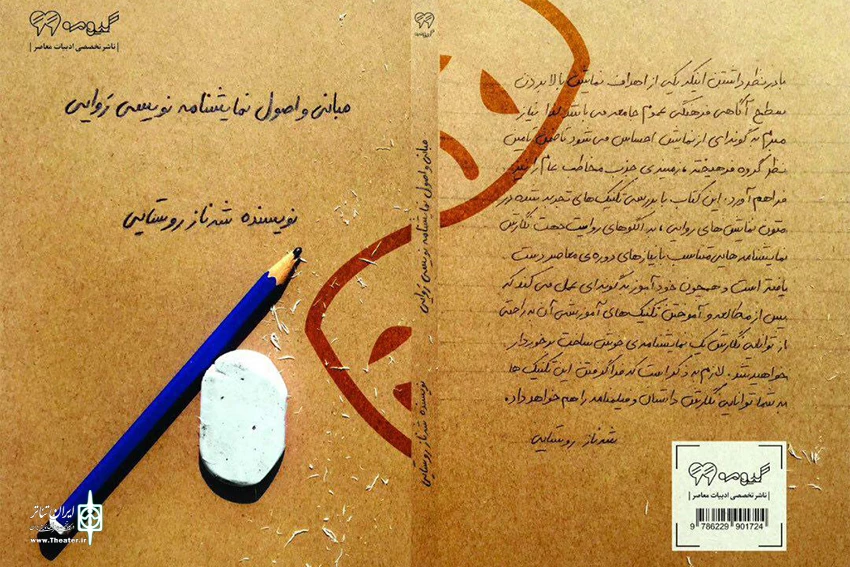 گیومه
| ناشر تخصصی ادبیات معاصر |
مبانی و اصول نمایشنامه نویسی روایی
نویسنده شهرناز روستایی
ایران تئاتر
www.Theater.ir
مبانی و اصول نمایشنامه نویسی روایی
نویسنده شهرناز روستایی
با در نظر داشتن اینکه یکی از اهداف نمایش بالا بردن
سطح آگاهی فرهنگی عموم جامعه می باشد لذا نیاز
مبرم به گونه‌ای از نمایش احساس می شود تا ضمن تامین
نظر گروه فرهیخته، زمینه‌ی جذب مخاطب عام را نیز
فراهم آورد. این کتاب با بررسی تکنیک های تجربه شده در
متون نمایش های روایی، به الگوهای روایت جهت نگارش
نمایشنامه هایی متناسب با نیازهای دوره‌ی معاصر دست
یافته است و همچون خودآموز به گونه‌ای عمل می کند که
پس از مطالعه و آموختن تکنیک های آموزشی آن به راحتی
از توانایی نگارش یک نمایشنامه‌ی خوش ساخت برخوردار
خواهید شد. لازم به ذکر است که فراگرفتن این تکنیک ها
به شما توانایی نگارش داستان و فیلمنامه را هم خواهد داد.
شهرناز روستایی
گیومه
| ناشر تخصصی ادبیات معاصر |
9 786229 901724